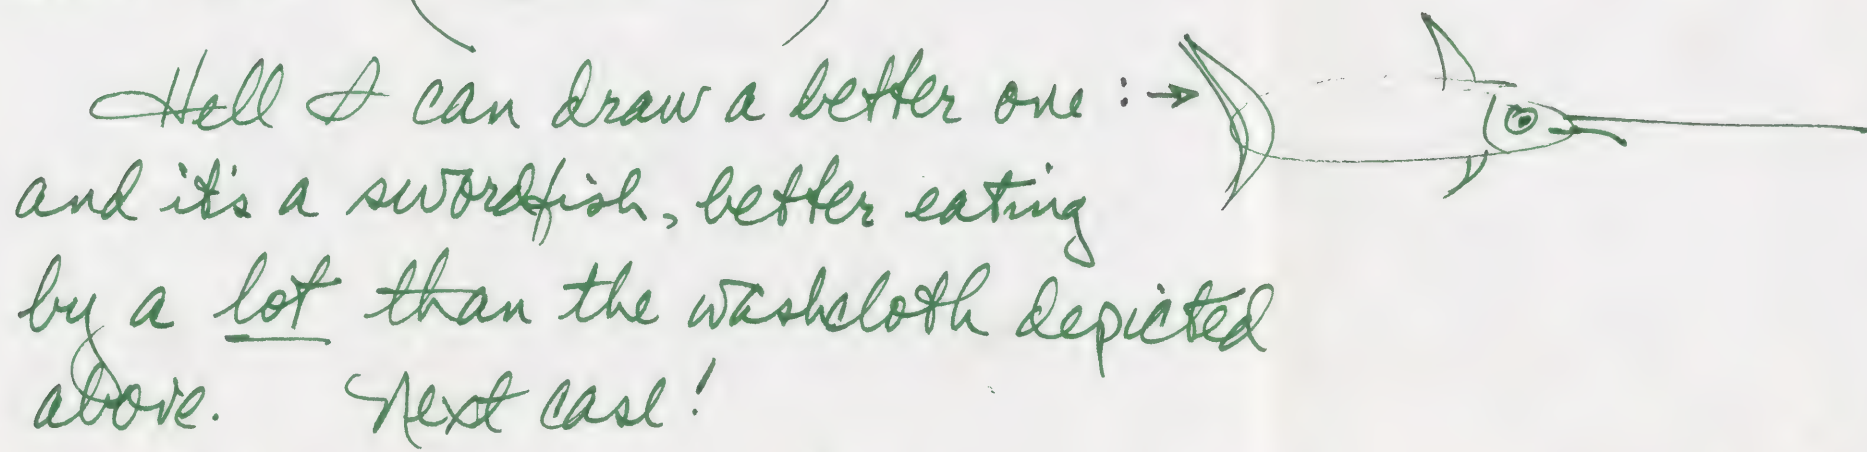 Hell I can draw a better one : →
and it's a swordfish, better eating
by a lot than the washcloth depicted
above. Next case!